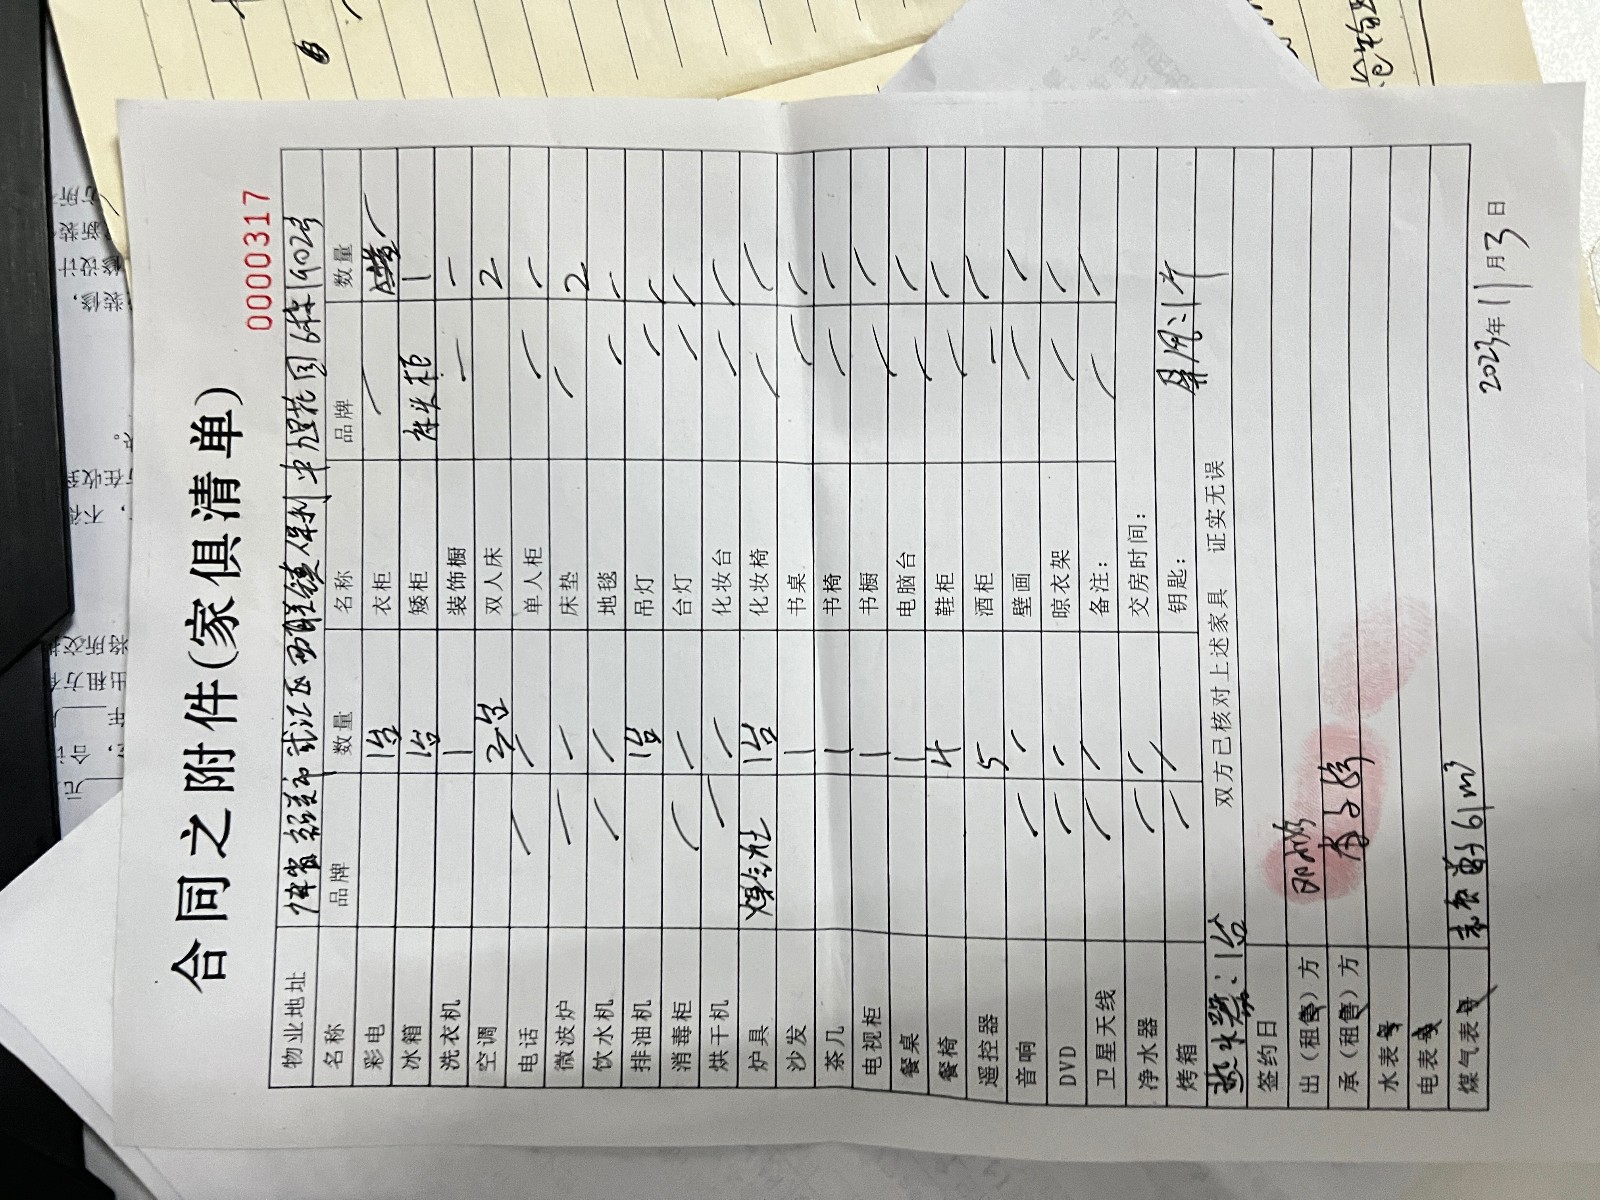 合同之附件(家俱清单)
0000317
物业地址 省 市 江区 镇保利中 花园6栋1902号
名称 品牌 数量 名称 品牌 数量
彩电 1台 衣柜 /
冰箱 1台 矮柜 床头柜 1
洗衣机 1 装饰橱 / /
空调 双人床 2
电话 / / 单人柜 / /
微波炉 / / 床垫 / 2
饮水机 / / 地毯 / /
排油机 1台 吊灯 / /
消毒柜 / / 台灯 / /
烘干机 / / 化妆台 / /
炉具 煤气灶 1台 化妆椅 / /
沙发 1 书桌 / /
茶几 1 书椅 / /
电视柜 1 书橱 / /
餐桌 1 电脑台 / /
餐椅 4 鞋柜 / /
遥控器 5 酒柜 / /
音响 / / 壁画 / /
DVD / / 晾衣架 / /
卫星天线 / / 备注: / /
净水器 / / 交房时间:
烤箱 / / 钥匙: 屏风:1个
热水器:1台 双方已核对上述家具 证实无误
签约日
出(租售)方
承(租售)方
水表号
电表
煤气表号 61m³
2023年11月3日